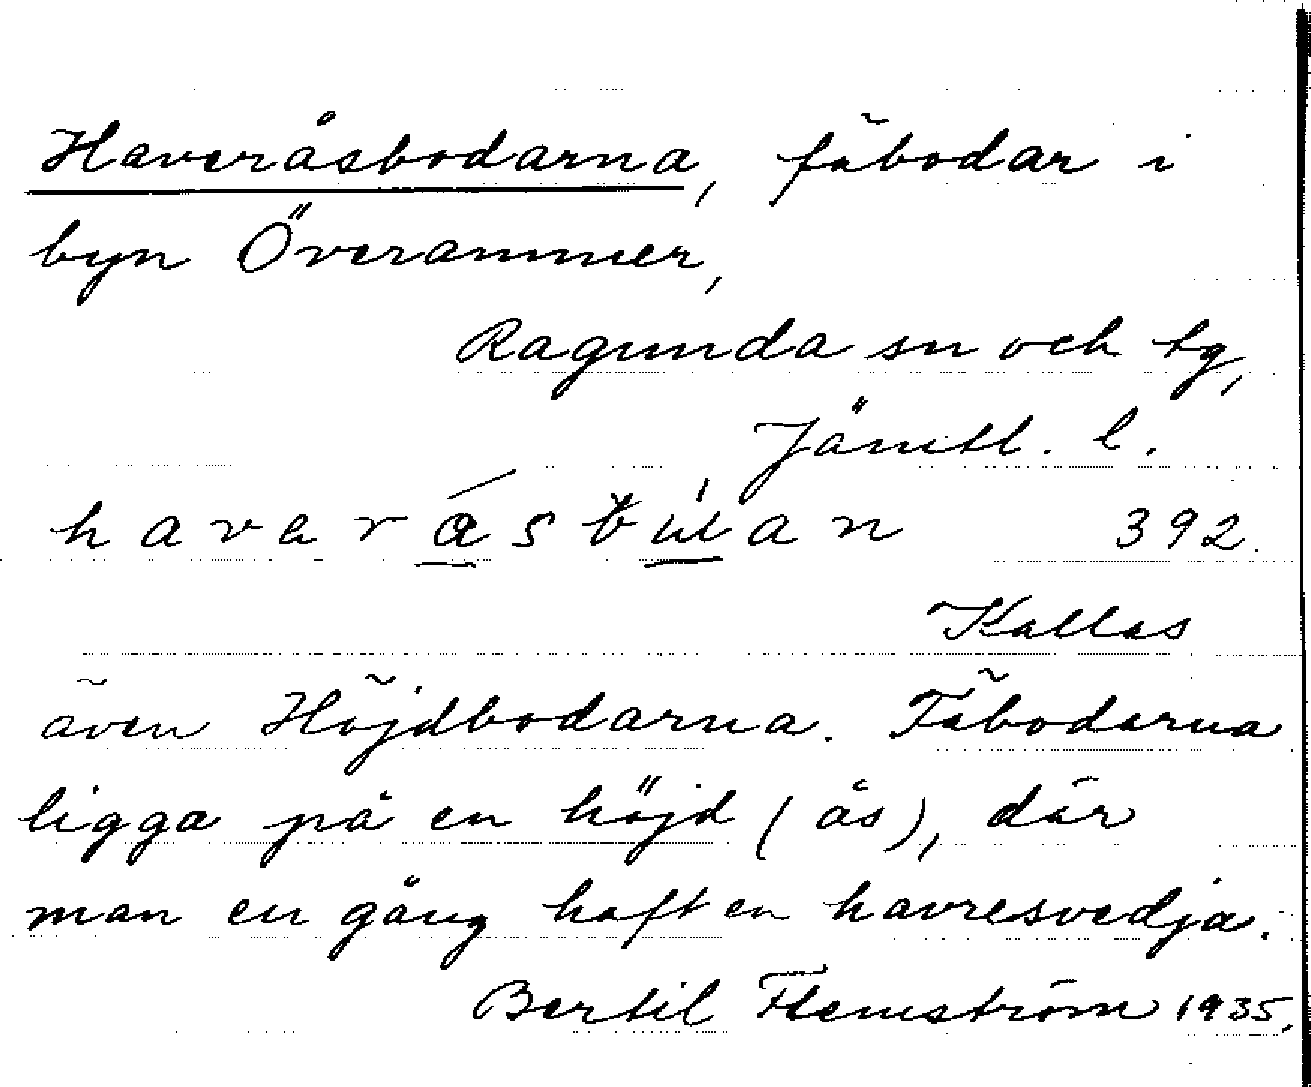 Haveråsbodarna, fäbodar i
byn Överammer,
Ragunda sn och tg,
Jämtl. l.
392.
Kallas
även Höjdbodarna. Fäbodarna
ligga på en höjd (ås), där
man en gång haft en havresvedja.
Bertil Flemström 1935.